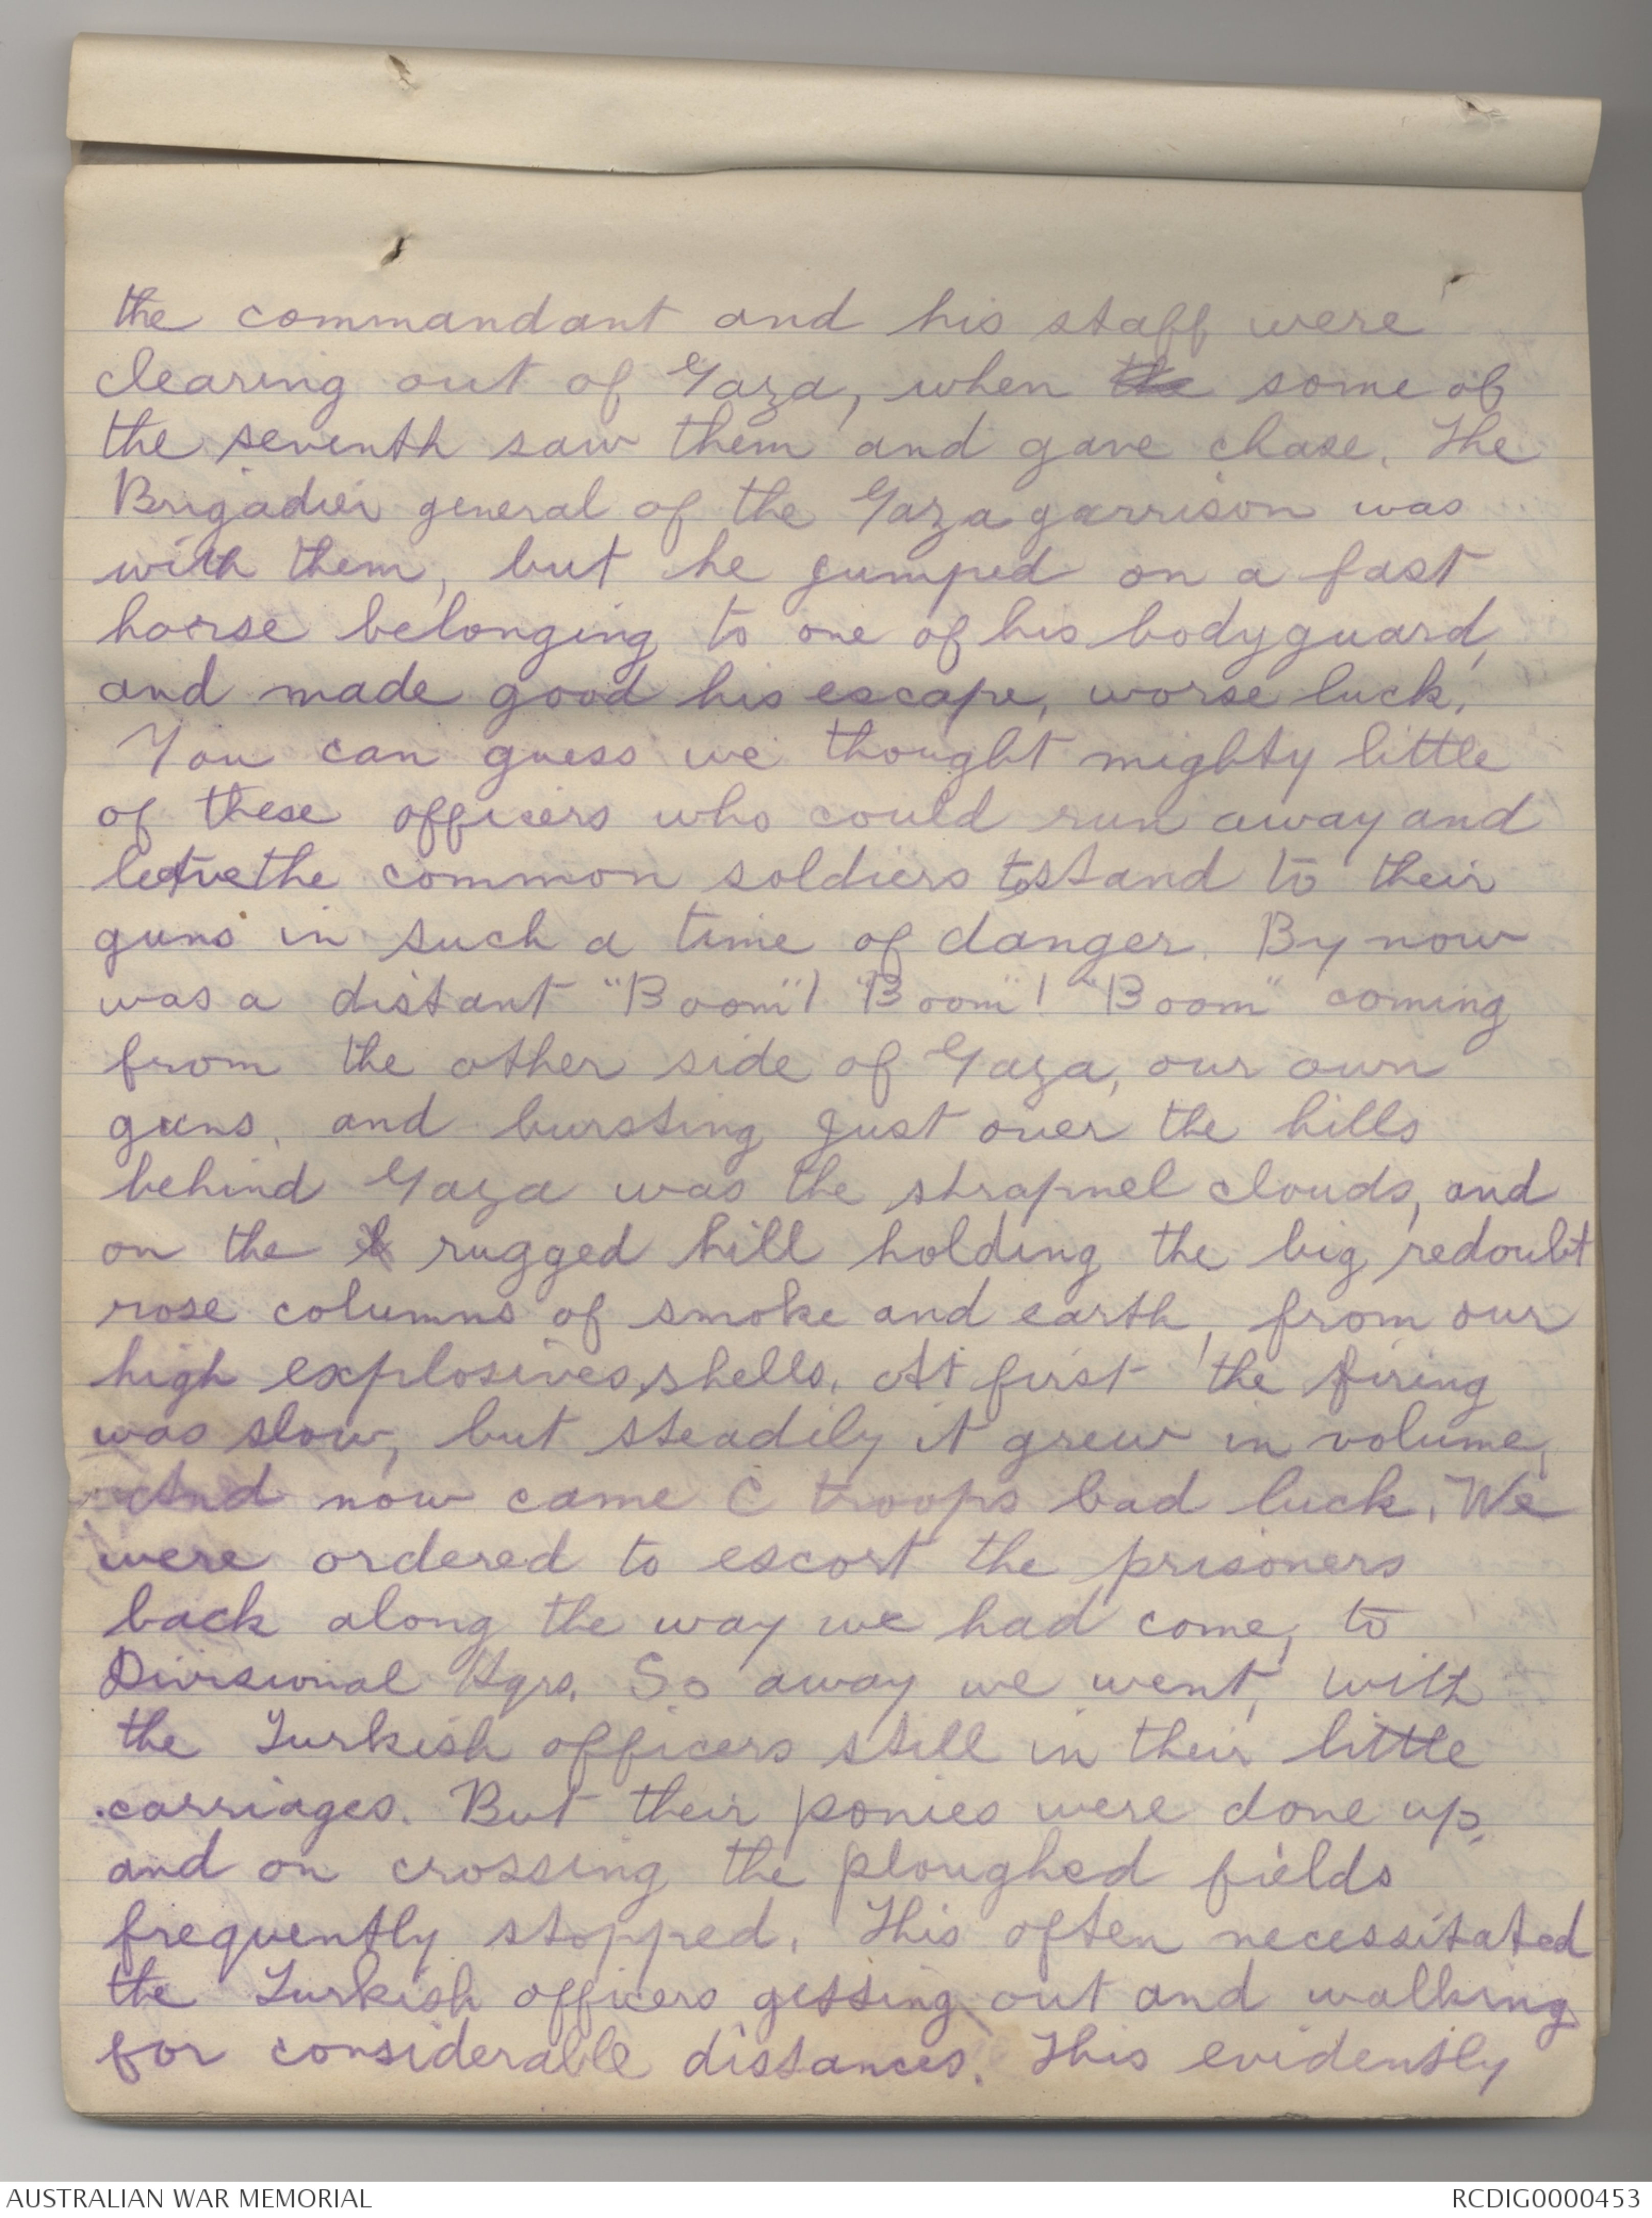 the commandant and his staff were
clearing out of Gaza, when the some of
the seventh saw them and gave chase. The
Brigadier general of the Gaza garrison was
with them, but he jumped on a fast
horse belonging to one of his bodyguard,
and made good his escape, worse luck.
You can guess we thought mighty little
of these officers who could run away and
leave the common soldiers to stand to their
guns in such a time of danger. By now
was a distant "Boom"! "Boom"! "Boom" coming
from the other side of Gaza, our own
guns, and bursting just over the hills
behind Gaza was the shrapnel clouds, and
on the rugged hill holding the big redoubt
rose columns of smoke and earth, from our
high explosives shells. At first the firing
was slow, but steadily it grew in volume,
And now came C troops bad luck. We
were ordered to escort the prisoners
back along the way we had come, to
Divisional Hqrs. So away we went, with
the Turkish officers still in their little
carriages. But their ponies were done up,
and on crossing the ploughed fields
frequently stopped. This often necessitated
the Turkish officers getting out and walking
for considerable distances. This evidently
AUSTRALIAN WAR MEMORIAL
RCDIG0000453